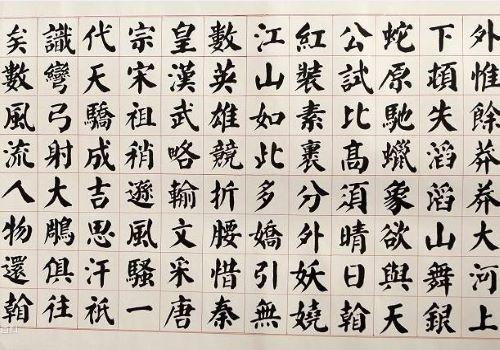 外惟餘莽莽大河上
下頓失滔滔山舞銀
蛇原馳蠟象欲與天
公試比高須晴日看
紅裝素裹分外妖嬈
江山如此多嬌引無
數英雄競折腰惜秦
皇漢武略輸文采唐
宗宋祖稍遜風騷一
代天驕成吉思汗祇
識彎弓射大鵰俱往
矣數風流人物還看